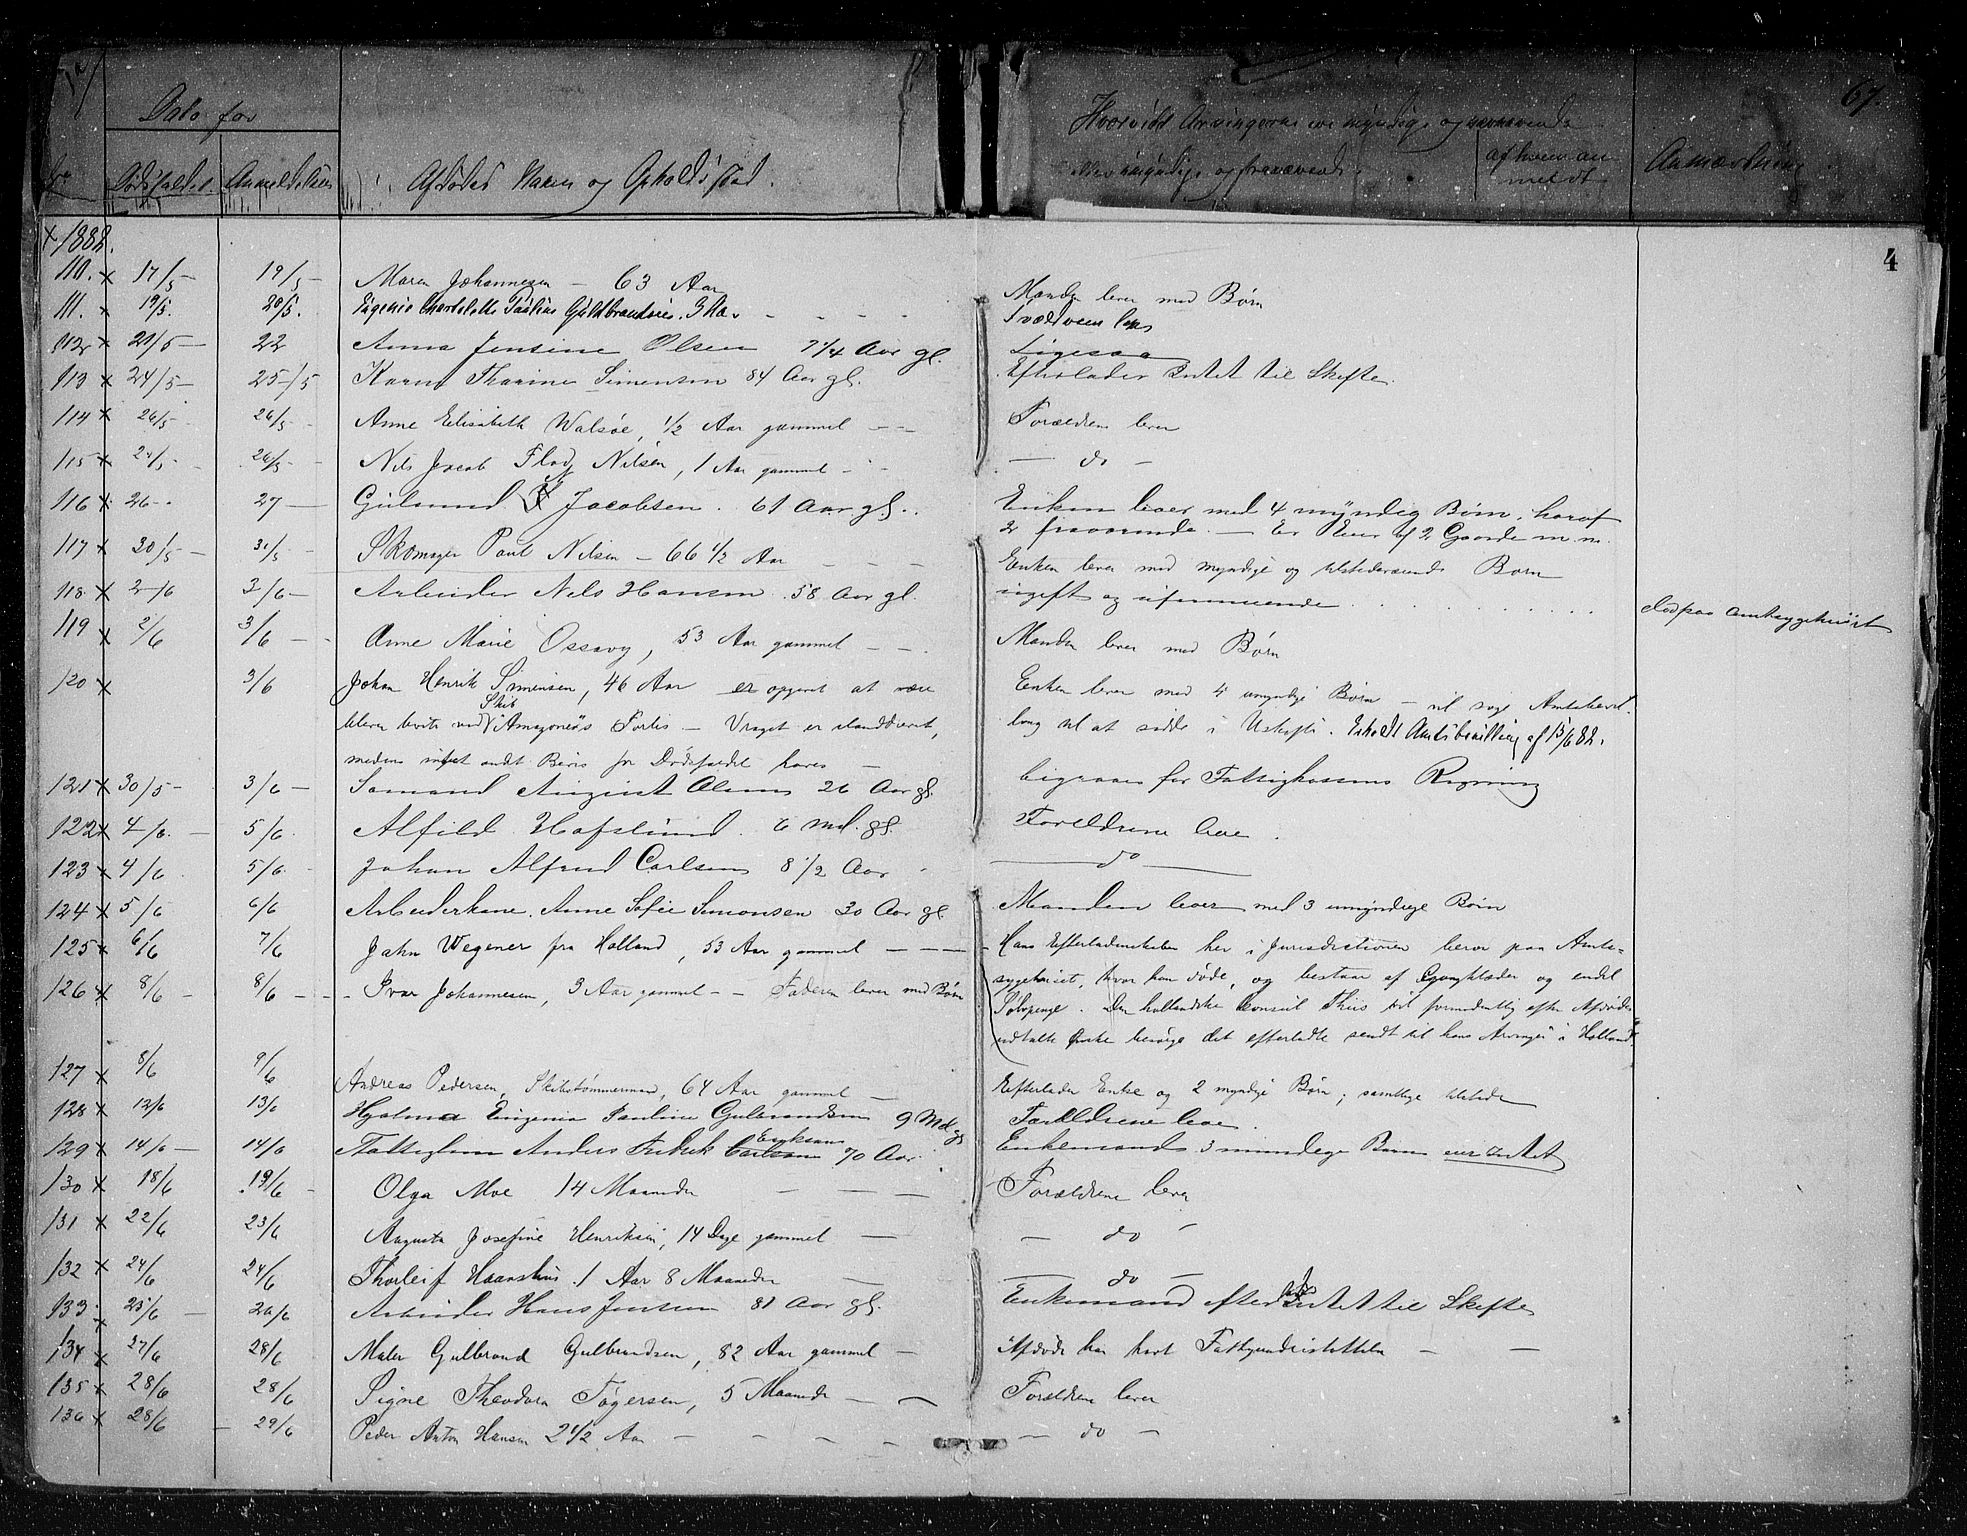 Dato for
Dødsfaldet. Anmeldelsen
Afdødes Navn og Opholdssted.
Hvorvidt Arvingerne ere myndige og nærværende
eller umyndige og fraværende
af hvem an
meldt
Anmærkning
67.
4
1882.
110. x 17/5 – 19/5 – Maren Johannesen – 63 Aar
Manden lever med Børn
111. x 19/5. 20/5. Eugenie Charlotte Gulbrandsen. 3 –
Forældrene leve
112 x 21/5 – 22 Anna Jensine Olsen 7 1/4 Aar gl.
Ligesaa
113 x 24/5 – 25/5 Karen Thorine Simensen 84 Aar gl.
Efterlader Intet til Skifte.
114 x 26/5 – 26/5 – Anne Elisabeth Walsøe, 1/2 Aar gammel – –
Forældrene lever
115 x 26/5 – Nils Jacob Flod Nilsen, 1 Aar gammel –
– do –
116 x 26 – 27 – Gulmund Jacobsen. 61 Aar gl.
Enken lever med 4 myndig Børn, hvoraf
2 fraværende. – Er Eier af 2 Gaarde m.m.
117 x 30/5 – 31/5 Skomager Paul Nilsen – 66 1/2 Aar – – –
Enken lever med myndige og tilstedeværende Børn
118. x 2/6 3/6 – Arbeider Nils Hansen. 58 Aar gl.
ugift og uformuende . . . . . . . .
død paa Amtssygehuset
119 x 2/6 3/6 – Anne Marie Ossavy, 53 Aar gammel – –
Manden lever med Børn
120 x 3/6 Johan Henrik Simensen, 46 Aar er opgivet at være
Skib
bleven borte ved "Amazones" Forlis – Vraget er ilanddrevet,
medens intet andet Bevis for Dødsfaldet haves –
Enken lever med 4 umyndige Børn – vil søge Amtsbevil-
ling til at sidde i Uskifte. Erholdt Amtsbevilling af 15/6 82.
121 x 30/5 – 3/6 – Samand August Olsen 26 Aar gl.
begraves for Fattigkassens Regning
122 x 4/6. – 5/6 Alfild Hafslund. 6 Md. gl.
Forældrene leve.
123 x 4/6 5/6 Johan Alfred Carlsen 8 1/2 Aar
– do –
124 x 5/6 6/6 Arbeiderkone. Anne Sofie Simonsen 30 Aar gl
Manden lever med 3 umyndige Børn
125 x 6/6 7/6 Jahn Wegener fra Holland, 53 Aar gammel – – –
Hans Efterladenskaber her i Jurisdictionen beror paa Amts-
sygehuset, hvor han døde, og bestaar af Gangklæder og endel
Sølvpenge. Den hollandske Konsul Thiis vil formodentlig efter Afdødes
udtalte Ønske besørge det efterladte sendt til hans Arvinger i Holland.
126 x 8/6 – 8/6 – – Ivar Johannesen, 3 Aar gammel – Faderen lever med Børn
127 x 8/6 9/6 Andreas Pedersen, Skibstømmermand, 64 Aar gammel –
Efterlader Enke og 2 myndige Børn; samtlige tilstede
128 x 12/6 13/6 Hjalma Eugenia Pauline Gulbrandsen 9 Md gl
Forældrene leve.
129 x 14/6 – 14/6 Fattiglem Anders Fredrik Eriksen 70 Aar.
Enkemand 3 myndige Børn eier Intet
130 x 18/6 19/6 – Olga Moe 14 Maaneder – – –
Forældrene lever
131 x 22/6 23/6 Augusta Josefine Henriksen, 14 Dage gammel –
– do –
132 x 24/6 24/6 Thorleif Haanshus. 1 Aar 8 Maaneder –
– do –
133. x 25/6 – 26/6 Arbeider Hans Jensen 81 Aar gl.
Enkemand efterlader Intet til Skifte
134 x 27/6 28/6 Maler Gulbrand Gulbrandsen, 82 Aar gammel –
Afdøde har havt Fattigunderstøttelse – –
135 x 28/6 28/6 Signe Theodora Tøgersen, 5 Maaneder – –
Forældrene lever
136 x 28/6 – 29/6 Peder Anton Hansen 2 1/2 Aar – – – –
– do –